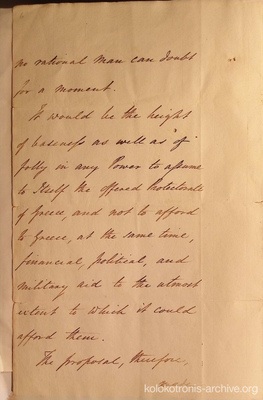 no rational man can doubt
for a moment.
It would be the height
of baseness as well as "of"
folly in any Power to assume
to Itself the offered Protectorate
of Greece, and not to afford
to Greece, at the same time,
financial, political, and
military aid to the utmost
extent to which it could
afford them.
The proposal, therefore,
kolokotronis-archive.org